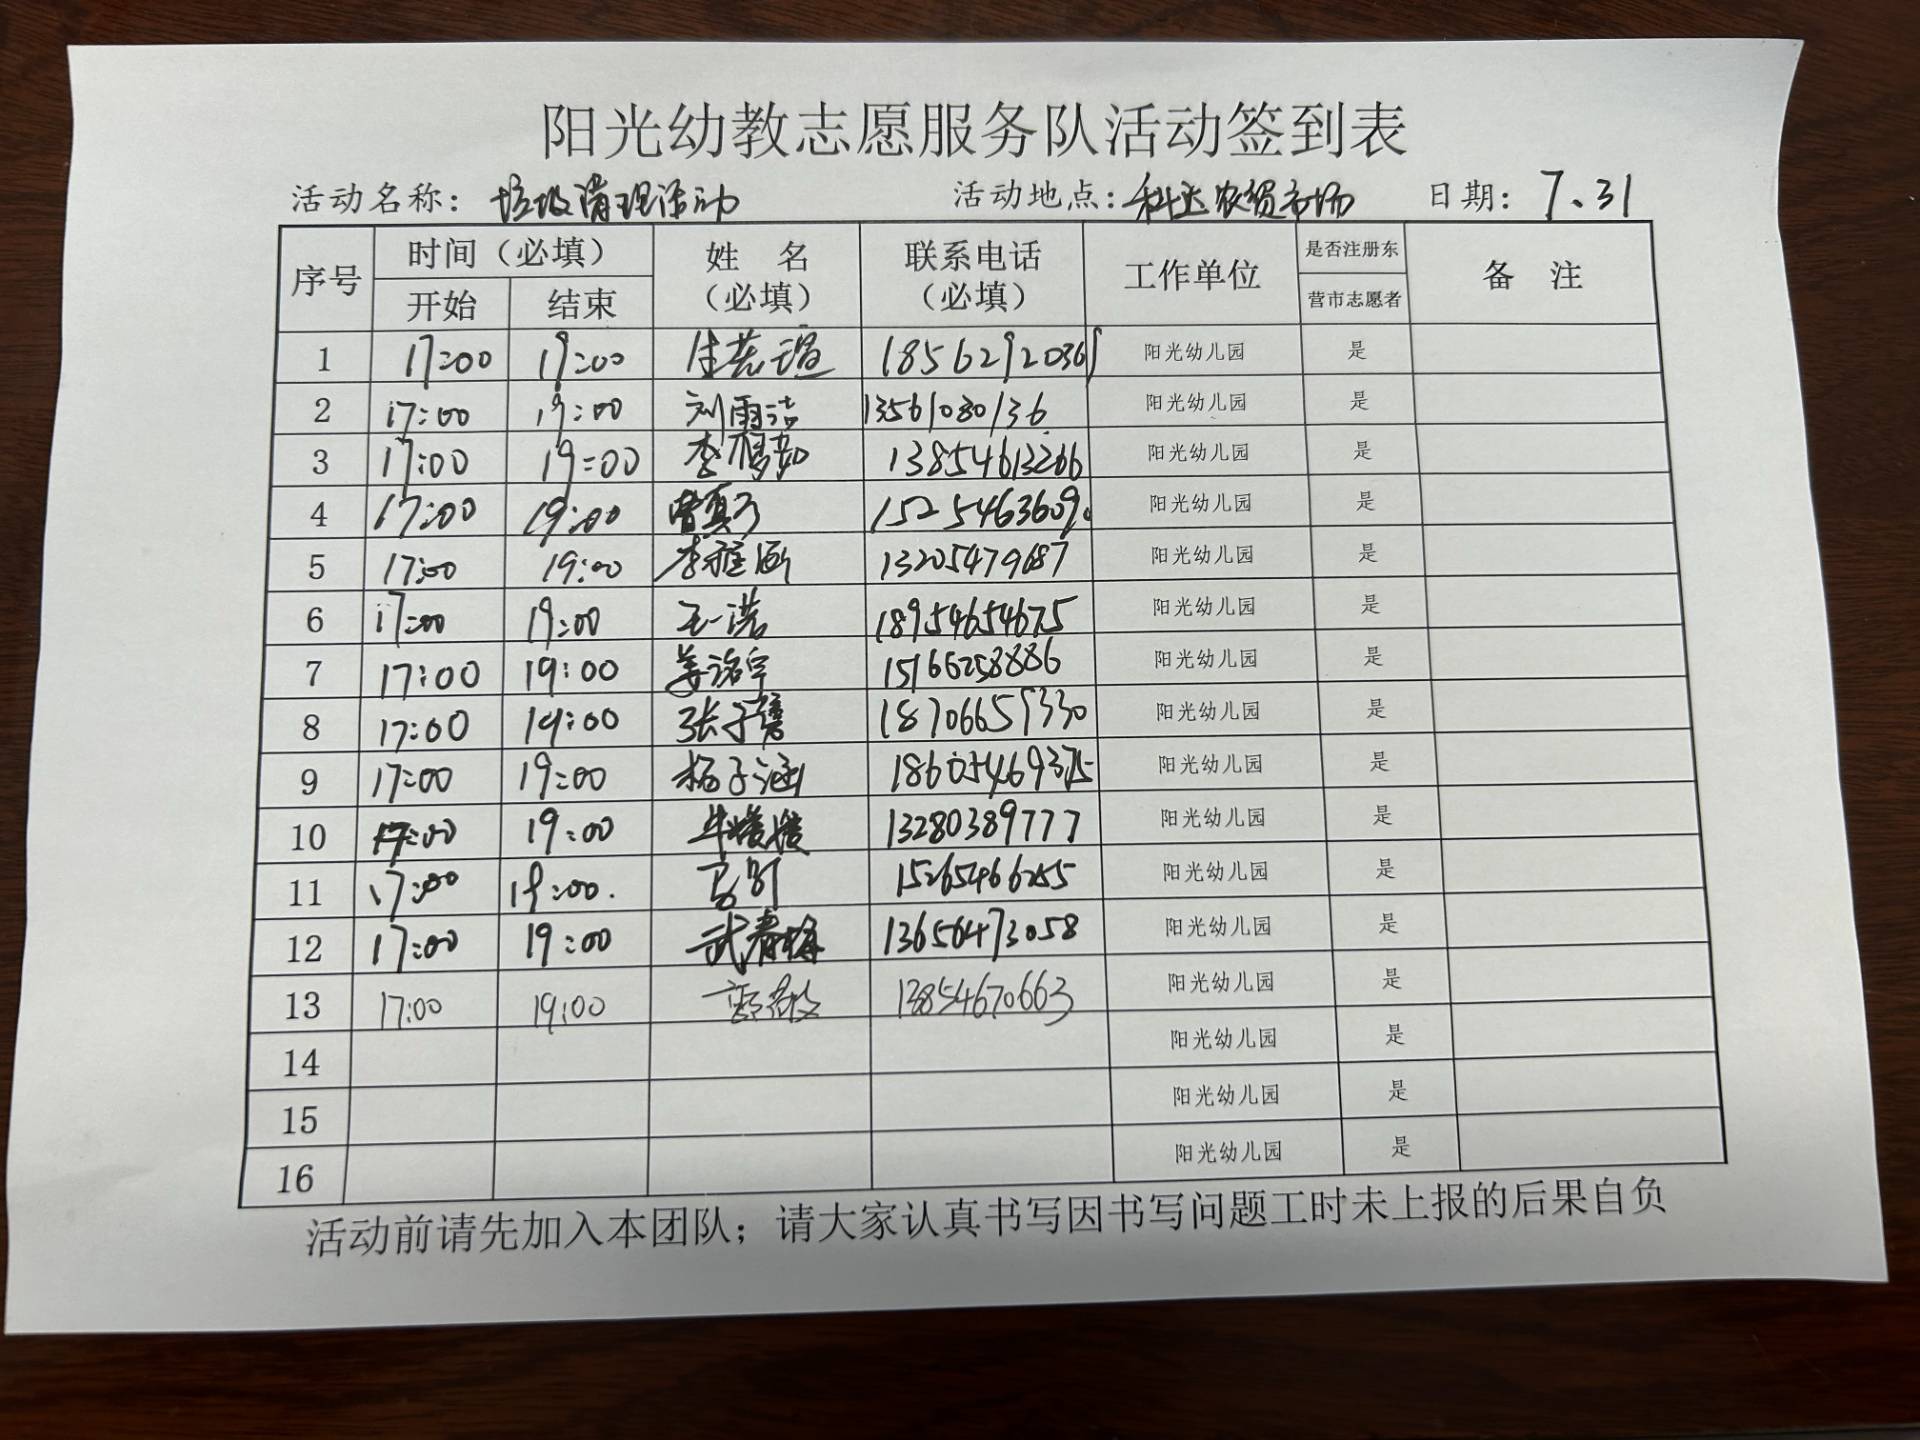 阳光幼教志愿服务队活动签到表
活动名称: 垃圾清理活动 活动地点: 科达农贸市场 日期: 7.31
序号 时间（必填） 姓 名（必填） 联系电话（必填） 工作单位 是否注册东营市志愿者 备 注
开始 结束
1 17:00 19:00 18562920369 阳光幼儿园 是
2 17:00 19:00 刘雨洁 13561080136 阳光幼儿园 是
3 17:00 19:00 李梦茹 13854613266 阳光幼儿园 是
4 17:00 19:00 曹真子 15254636090 阳光幼儿园 是
5 17:00 19:00 李雅 13205479687 阳光幼儿园 是
6 17:00 19:00 王一浩 18954654675 阳光幼儿园 是
7 17:00 19:00 姜洺宇 15166258886 阳光幼儿园 是
8 17:00 19:00 张子 18706659330 阳光幼儿园 是
9 17:00 19:00 杨子涵 18605469375 阳光幼儿园 是
10 17:00 19:00 牛媛媛 13280389777 阳光幼儿园 是
11 17:00 19:00 15265466255 阳光幼儿园 是
12 17:00 19:00 武春梅 13656473058 阳光幼儿园 是
13 17:00 19:00 13854670663 阳光幼儿园 是
14 阳光幼儿园 是
15 阳光幼儿园 是
16 阳光幼儿园 是
活动前请先加入本团队；请大家认真书写因书写问题工时未上报的后果自负